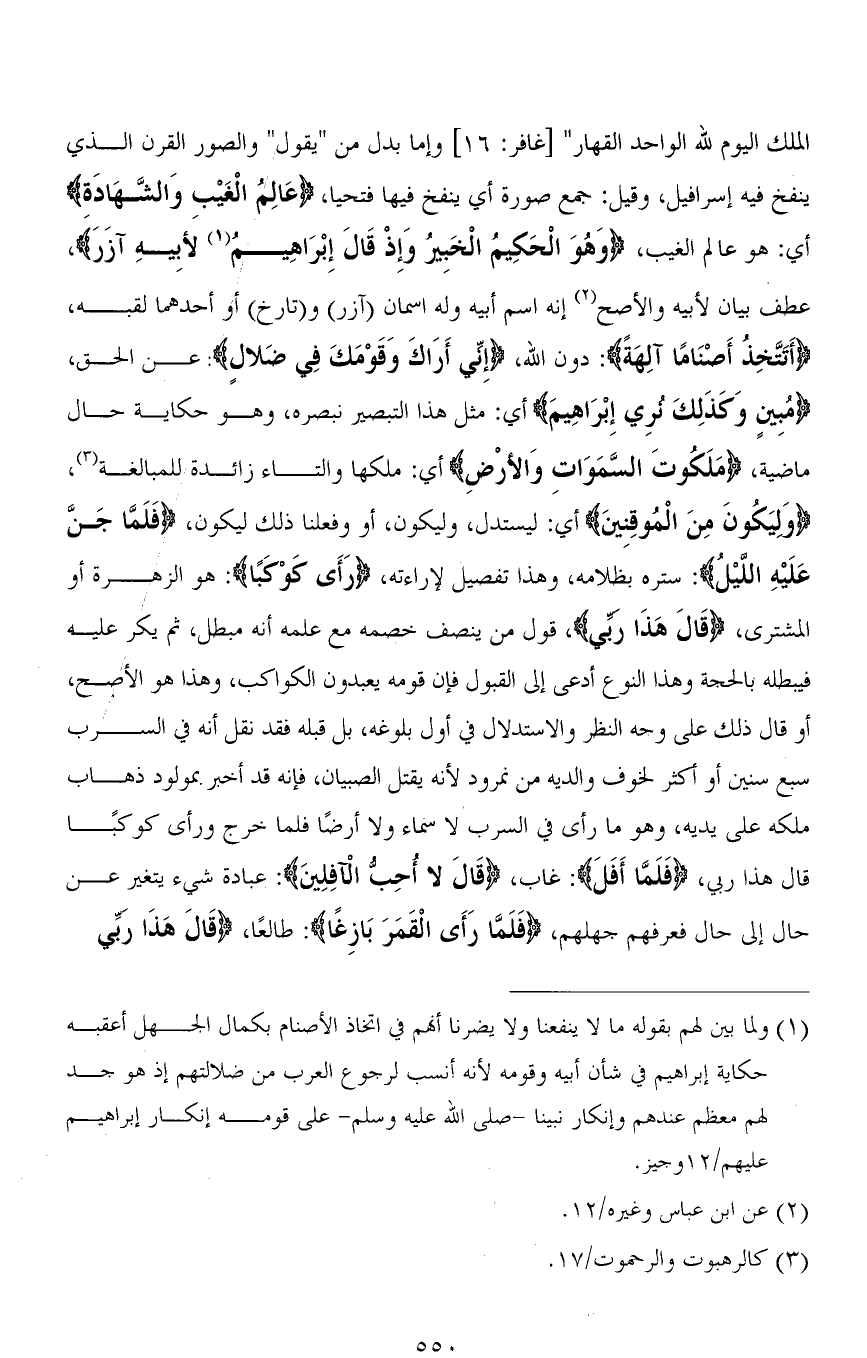 الملك اليوم لله الواحد القهار" [غافر: ١٦] وإما بدل من "يقول" والصور القرن الـــذي
ينفخ فيه إسرافيل، وقيل: جمع صورة أي ينفخ فيها فتحيا، ﴿عَالِمُ الْغَيْبِ وَالشَّهَادَةِ﴾
أي: هو عالم الغيب، ﴿وَهُوَ الْحَكِيمُ الْخَبِيرُ وَإِذْ قَالَ إِبْرَاهِيـــمُ(١) لأَبِيـهِ آزَرَ﴾،
عطف بيان لأبيه والأصح(٢) إنه اسم أبيه وله اسمان (آزر) و(تارخ) أو أحدهما لقبـــه،
﴿أَتَتَّخِذُ أَصْنَامًا آلِهَةً﴾: دون الله، ﴿إِنِّي أَرَاكَ وَقَوْمَكَ فِي ضَلالٍ﴾: عـــن الحـق،
﴿مُبِينٍ وَكَذَلِكَ نُرِي إِبْرَاهِيمَ﴾ أي: مثل هذا التبصير نبصره، وهـــو حكايـــة حـــال
ماضية، ﴿مَلَكُوتَ السَّمَوَاتِ وَالأَرْضِ﴾ أي: ملكها والتـــاء زائـــدة للمبالغـــة(٣)،
﴿وَلِيَكُونَ مِنَ الْمُوقِنِينَ﴾ أي: ليستدل، وليكون، أو وفعلنا ذلك ليكون، ﴿فَلَمَّا جَـنَّ
عَلَيْهِ اللَّيْلُ﴾: ستره بظلامه، وهذا تفصيل لإراءته، ﴿رَأَى كَوْكَبًا﴾: هو الزهـــرة أو
المشترى، ﴿قَالَ هَذَا رَبِّي﴾، قول من ينصف خصمه مع علمه أنه مبطل، ثم يكر عليـــه
فيبطله بالحجة وهذا النوع أدعى إلى القبول فإن قومه يعبدون الكواكب، وهذا هو الأصـح،
أو قال ذلك على وجه النظر والاستدلال في أول بلوغه، بل قبله فقد نقل أنه في الســـرب
سبع سنين أو أكثر لخوف والديه من نمرود لأنه يقتل الصبيان، فإنه قد أخبر بمولود ذهـــاب
ملكه على يديه، وهو ما رأى في السرب لا سماء ولا أرضًا فلما خرج ورأى كوكبًـــا
قال هذا ربي، ﴿فَلَمَّا أَفَلَ﴾: غاب، ﴿قَالَ لا أُحِبُّ الْآفِلِينَ﴾: عبادة شيء يتغير عـــن
حال إلى حال فعرفهم جهلهم، ﴿فَلَمَّا رَأَى الْقَمَرَ بَازِغًا﴾: طالعًا، ﴿قَالَ هَذَا رَبِّي
(١) ولما بين لهم بقوله ما لا ينفعنا ولا يضرنا أنهم في اتخاذ الأصنام بكمال الجـــهل أعقبـــه
حكاية إبراهيم في شأن أبيه وقومه لأنه أنسب لرجوع العرب من ضلالتهم إذ هو جـــد
لهم معظم عندهم وإنكار نبينا -صلى الله عليه وسلم- على قومـــه إنكـــار إبراهيـــم
عليهم/١٢وجيز.
(٢) عن ابن عباس وغيره/١٢.
(٣) كالرهبوت والرحموت/١٧.
٥٥٠